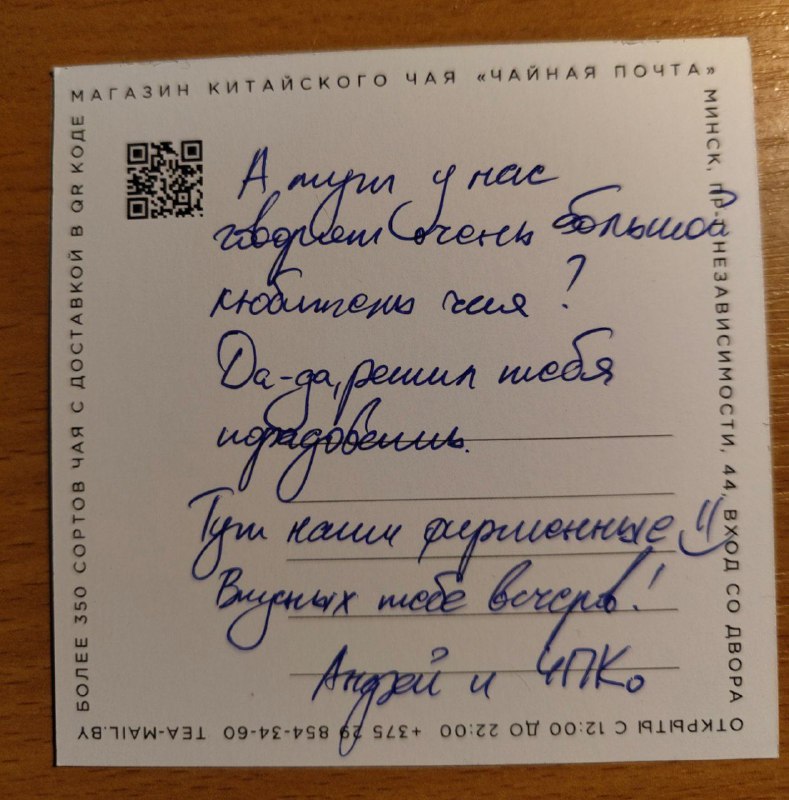 МАГАЗИН КИТАЙСКОГО ЧАЯ «ЧАЙНАЯ ПОЧТА»
МИНСК, ПР-Т НЕЗАВИСИМОСТИ, 44, ВХОД СО ДВОРА
ОТКРЫТЫ С 12:00 ДО 22:00 +375 29 854-34-60 TEA-MAIL.BY
БОЛЕЕ 350 СОРТОВ ЧАЯ С ДОСТАВКОЙ В QR КОДЕ
А тут у нас
говорят очень большой
любитель чая?
Да-да, решил тебя
порадовать.
Тут наши фирменные
Вкусных тебе вечеров!
Андрей и ЧПКо